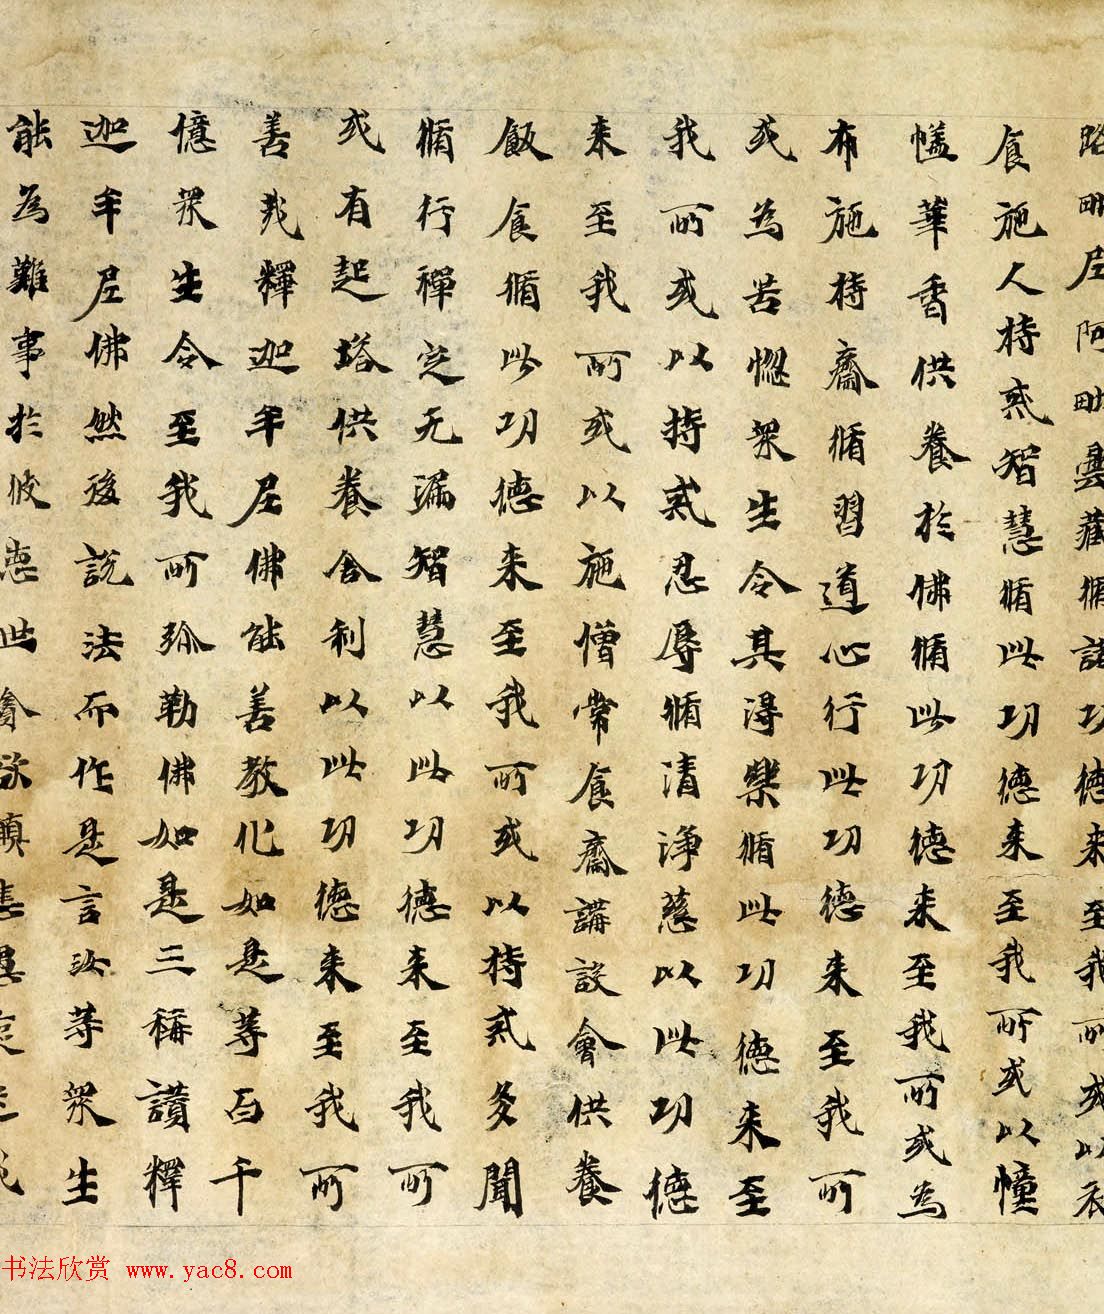 路毗尼阿毗曇藏脩諸功德来至我所或以衣
食施人持戒智慧脩此功德来至我所或以幢
幡華香供養於佛脩此功德来至我所或為
布施持齋脩習道心行此功德来至我所
或為苦惱眾生令其得樂脩此功德来至
我所或以持戒忍辱脩清淨慈以此功德
来至我所或以施僧常食齋講設會供養
飯食脩此功德来至我所或以持戒多聞
脩行禪定无漏智慧以此功德来至我所
或有起塔供養舍利以此功德来至我所
善哉釋迦牟尼佛能善教化如是等百千
億眾生令至我所弥勒佛如是三稱讚釋
迦牟尼佛然後說法而作是言汝等眾生
能為難事於彼惡世
书法欣赏 www.yac8.com